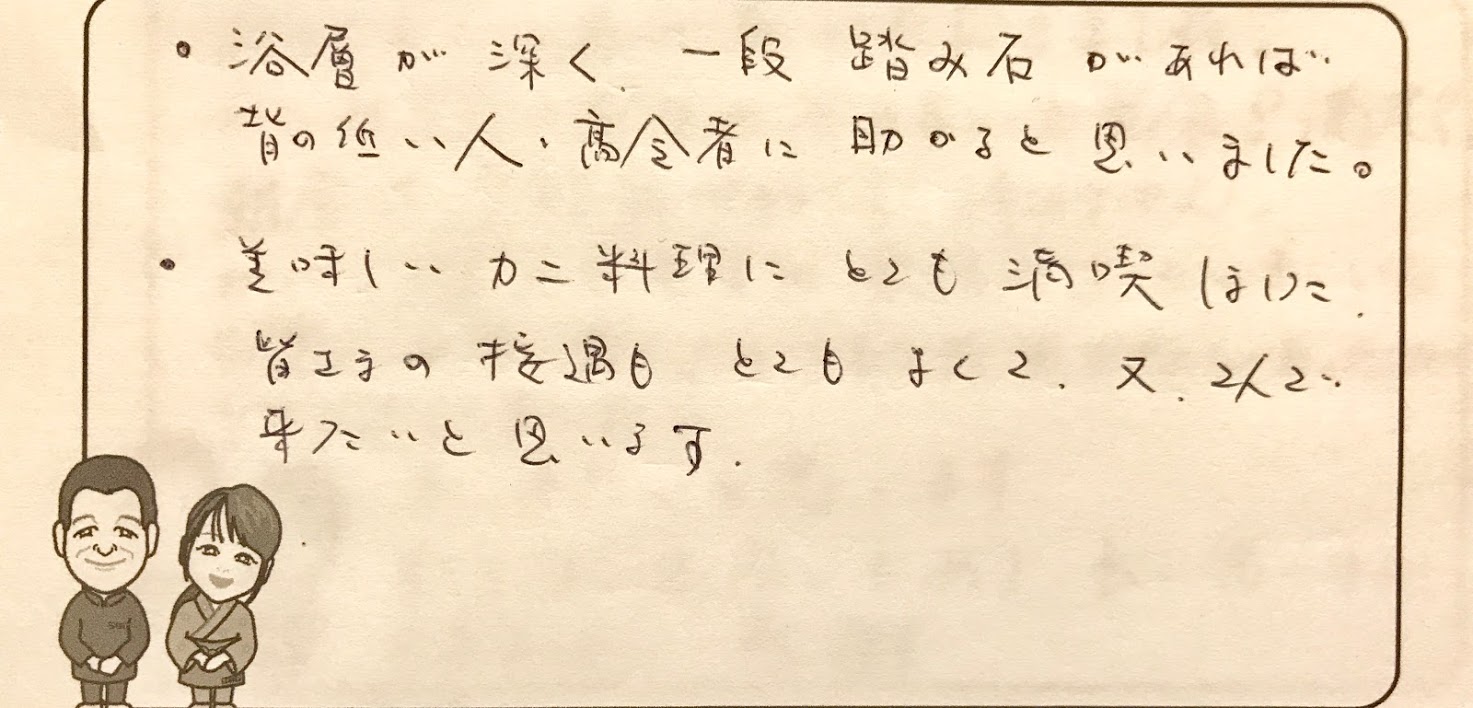 ・浴層が深く、一段 踏み石があれば
背の低い人、高令者に助かると思いました。
・美味しいカニ料理にとても満喫しました、
皆さまの接遇もとてもよくて、又、2人で
来たいと思います.